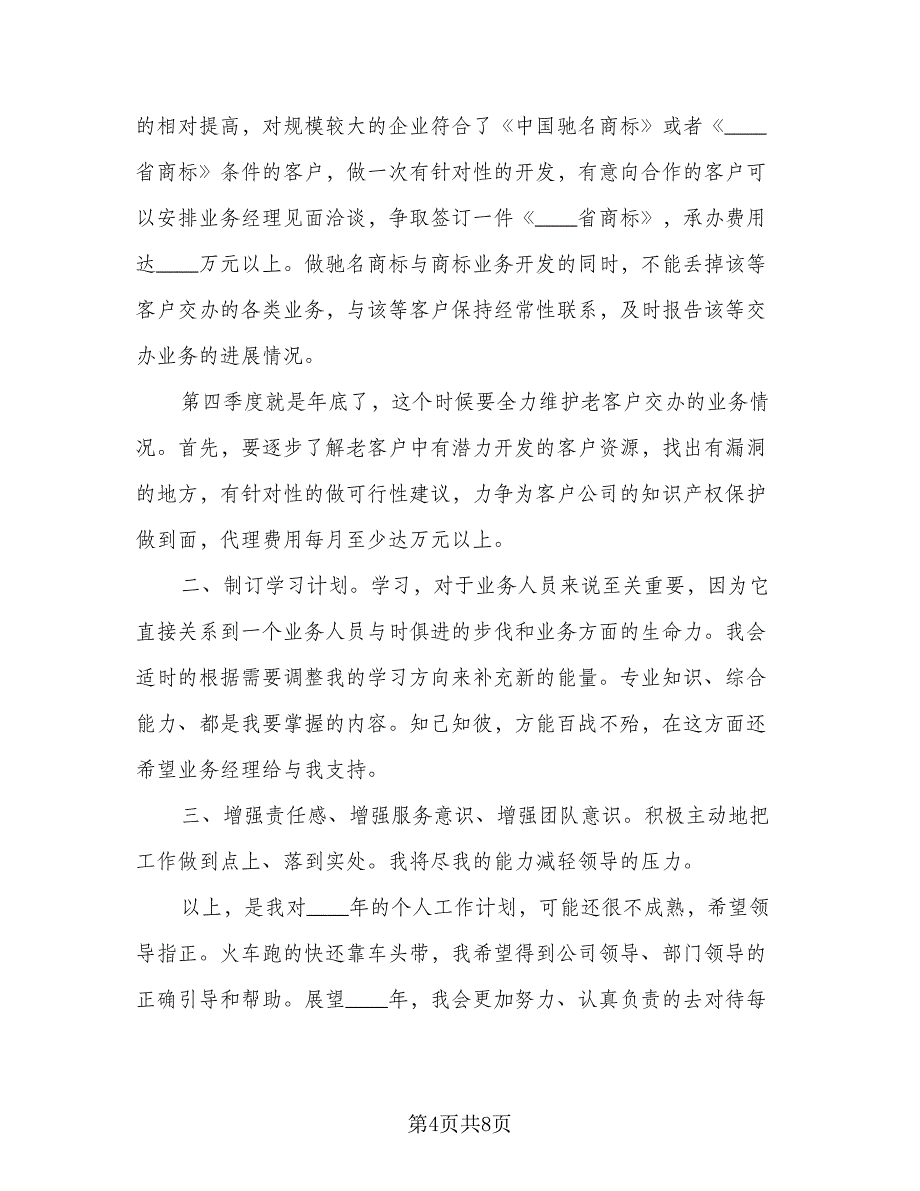 的相对提高，对规模较大的企业符合了《中国驰名商标》或者《____
省商标》条件的客户，做一次有针对性的开发，有意向合作的客户可
以安排业务经理见面洽谈，争取签订一件《____省商标》，承办费用
达____万元以上。做驰名商标与商标业务开发的同时，不能丢掉该等
客户交办的各类业务，与该等客户保持经常性联系，及时报告该等交
办业务的进展情况。
第四季度就是年底了，这个时候要全力维护老客户交办的业务情
况。首先，要逐步了解老客户中有潜力开发的客户资源，找出有漏洞
的地方，有针对性的做可行性建议，力争为客户公司的知识产权保护
做到面，代理费用每月至少达万元以上。
二、制订学习计划。学习，对于业务人员来说至关重要，因为它
直接关系到一个业务人员与时俱进的步伐和业务方面的生命力。我会
适时的根据需要调整我的学习方向来补充新的能量。专业知识、综合
能力、都是我要掌握的内容。知己知彼，方能百战不殆，在这方面还
希望业务经理给与我支持。
三、增强责任感、增强服务意识、增强团队意识。积极主动地把
工作做到点上、落到实处。我将尽我的能力减轻领导的压力。
以上，是我对____年的个人工作计划，可能还很不成熟，希望领
导指正。火车跑的快还靠车头带，我希望得到公司领导、部门领导的
正确引导和帮助。展望____年，我会更加努力、认真负责的去对待每
第4页共8页